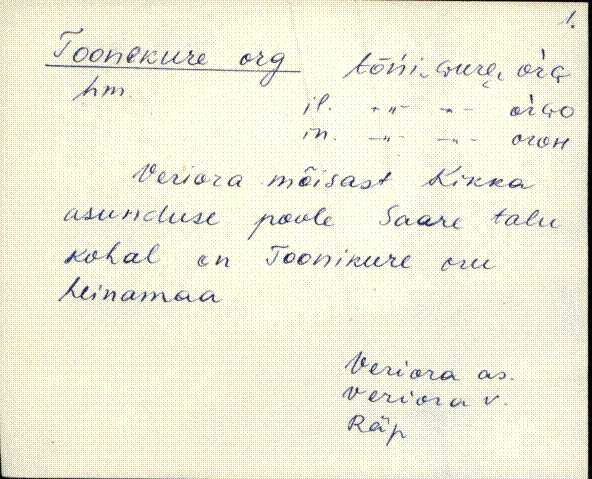 1.
Toonekure org tōńi‿ɢureˬ oŕɢ
hm.
il. -"- -"- oŕɢo
in. -"- -"- oroʜ
Veriora mõisast Kikka
asunduse poole Saare talu
kohal on Toonikure oru
heinamaa
Veriora as.
Veriora v.
Räp